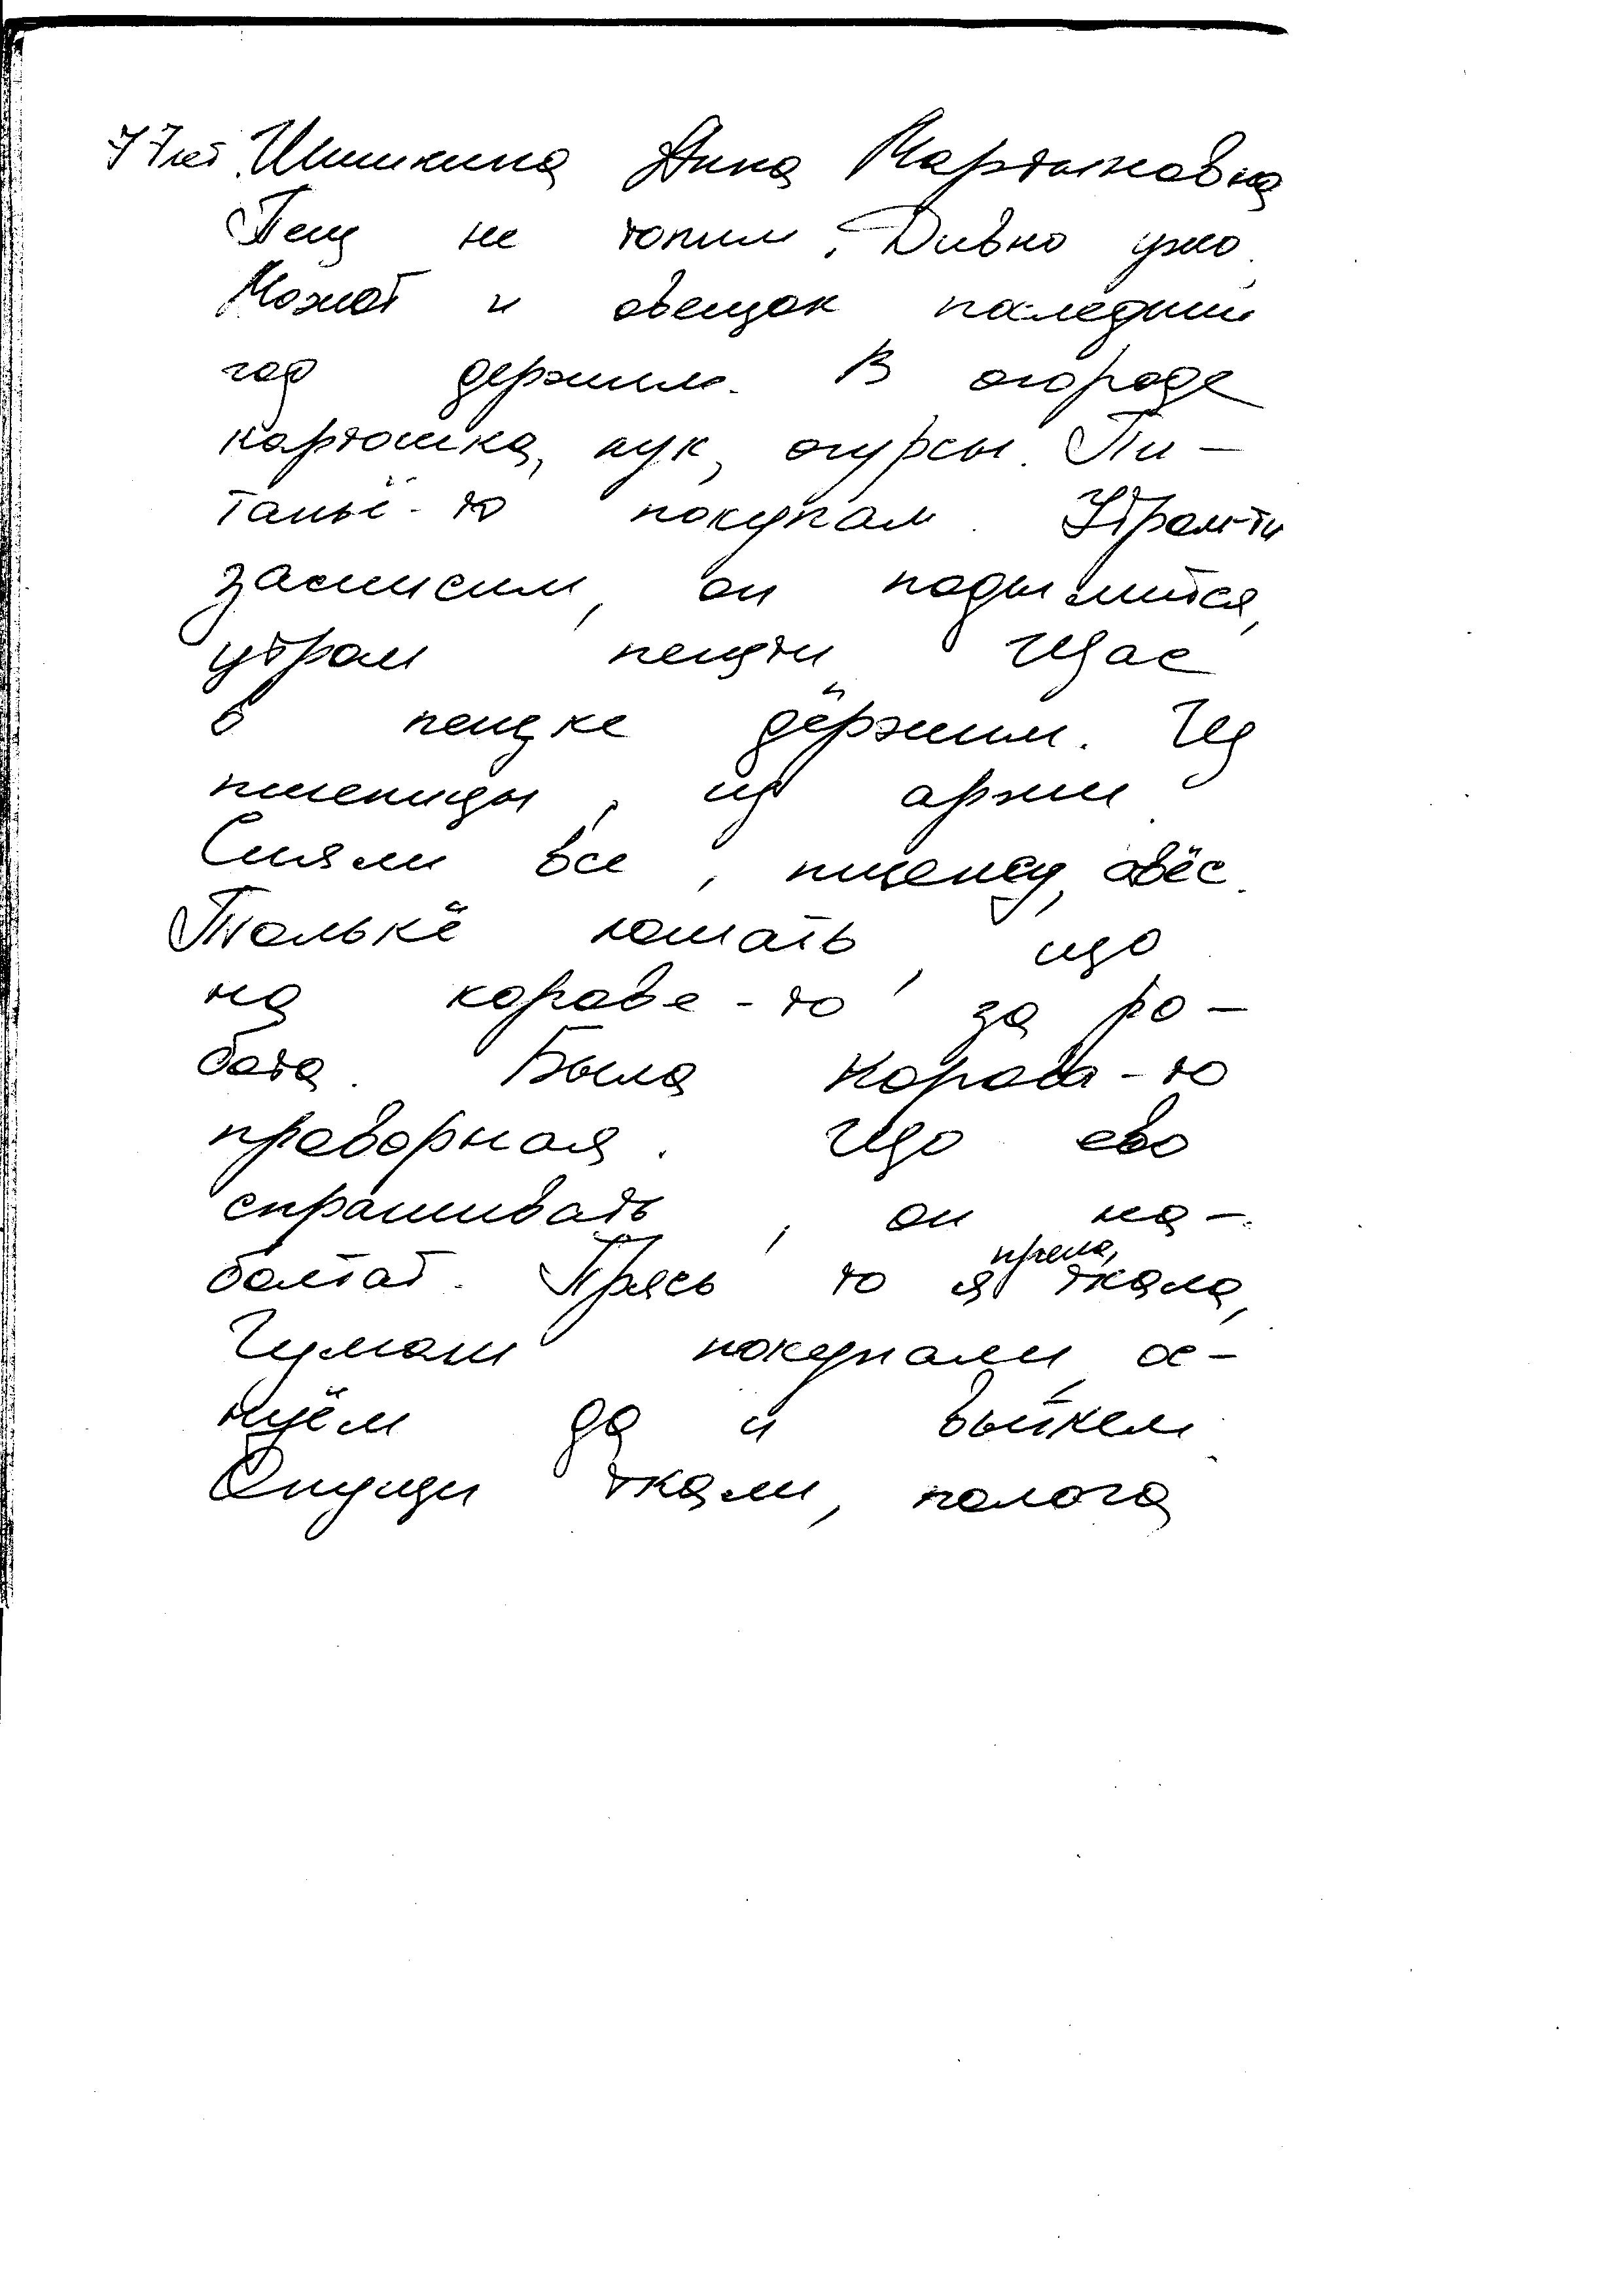 77 лет. Шишкина Анна Мартыновна
Пещ не топим. Дивно ужо.
Можот и овещок последний
год держим. В огороде
картошка, лук, огурсы. Пи-
таньё-то покупам. Утром-ти
замисим, он подымится,
утром пещти. Щас
в пещке дёржим. Из
пшеницы, из аржи.
Сияли все, пшеницу, овёс.
Толькё юмать, що
на корове-то за ро-
бота. Была корова-то
проворная. Що ево
спрашивать, он на-
болтат. Прясь то я прела, ткала,
Гумаги покупали, ос-
нуём да и выткем.
Опущи ткали, полога